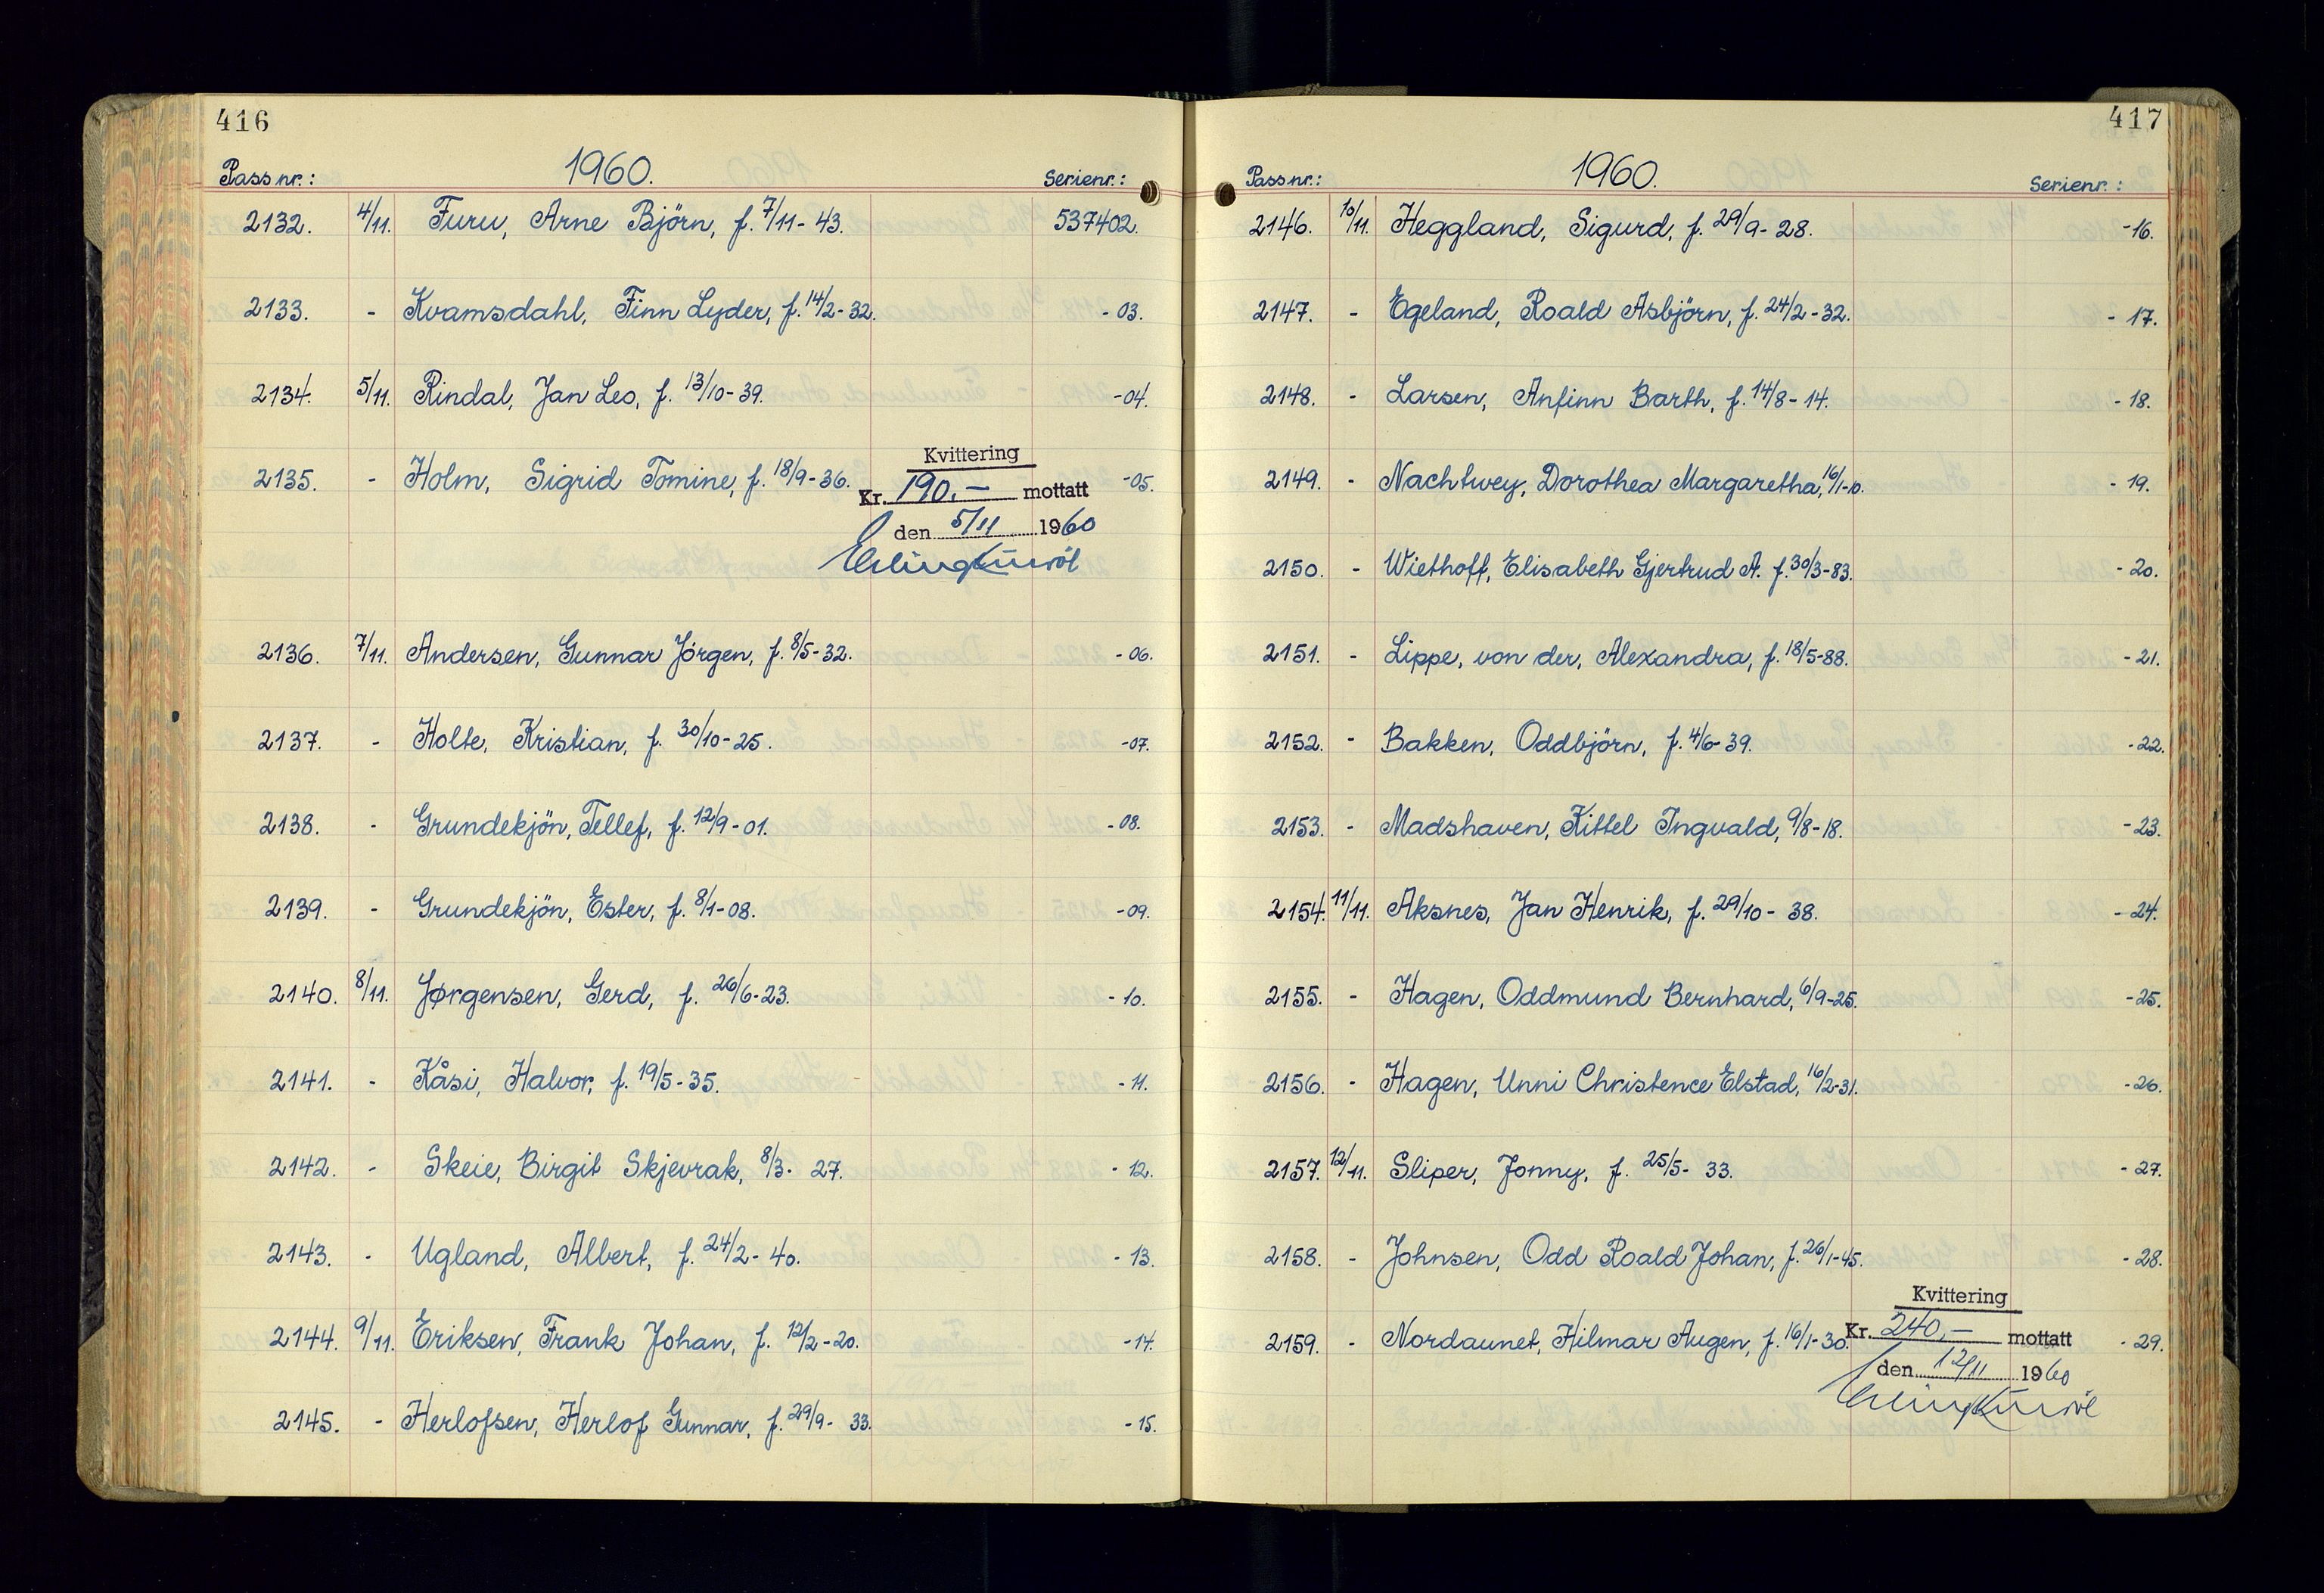 416
1960.
Passnr.: Serienr.:
2132. 4/11. Furu, Arne Björn, f. 7/11-43. 537402.
2133. - Kvamsdahl, Finn Lyder, f. 14/2-32. -03.
2134. 5/11. Rindal, Jan Leo, f. 13/10-39. -04.
2135. - Holm, Sigrid Tomine, f. 18/9-36. -05.
Kvittering
Kr. 190.- mottatt
den 5/11 1960
2136. 7/11. Andersen, Gunnar Jörgen, f. 8/5-32. -06.
2137. - Holte, Kristian, f. 30/10-25. -07.
2138. - Grundekjön, Tellef, f. 12/9-01. -08.
2139. - Grundekjön, Ester, f. 8/1-08. -09.
2140. 8/11. Jørgensen, Gerd, f. 26/6-23. -10.
2141. - Kåsi, Halvor, f. 19/5-35. -11.
2142. - Skeie, Birgit Skjevrak, 8/3- 27. -12.
2143. - Ugland, Albert, f. 24/2-40. -13.
2144. 9/11. Eriksen, Frank Johan, f. 12/2-20. -14.
2145. - Herlofsen, Herlof Gunnar, f. 29/9- 33. -15.
417
1960.
Passnr.: Serienr.:
2146. 10/11. Heggland, Sigurd, f. 29/9-28. -16.
2147. - Egeland, Roald Asbjörn, f. 24/2-32. -17.
2148. - Larsen, Anfinn Barth, f. 14/8-14. -18.
2149. - Nachtwey, Dorothea Margaretha, 16/1-10. -19.
2150. - Wiethoff, Elisabeth Gjertrud A. f. 30/3-83. -20.
2151. - Lippe, von der, Alexandra, f. 18/5-88. -21.
2152. - Bakken, Oddbjörn, f. 4/6-39. -22.
2153. - Madshaven, Kittel Ingvald, 9/8-18. -23.
2154. 11/11. Aksnes, Jan Henrik, f. 29/10- 38. -24.
2155. - Hagen, Oddmund Bernhard, 6/9-25. -25.
2156. - Hagen, Unni Christence Elstad, 16/2-31. -26.
2157. 12/11. Sliper, Jonny, f. 25/5- 33. -27.
2158. - Johnsen, Odd Roald Johan, f. 26/1-45. -28.
2159. - Nordaunet, Hilmar Augen, f. 16/1-30. -29.
Kvittering
Kr. 240.- mottatt
den 12/11 1960